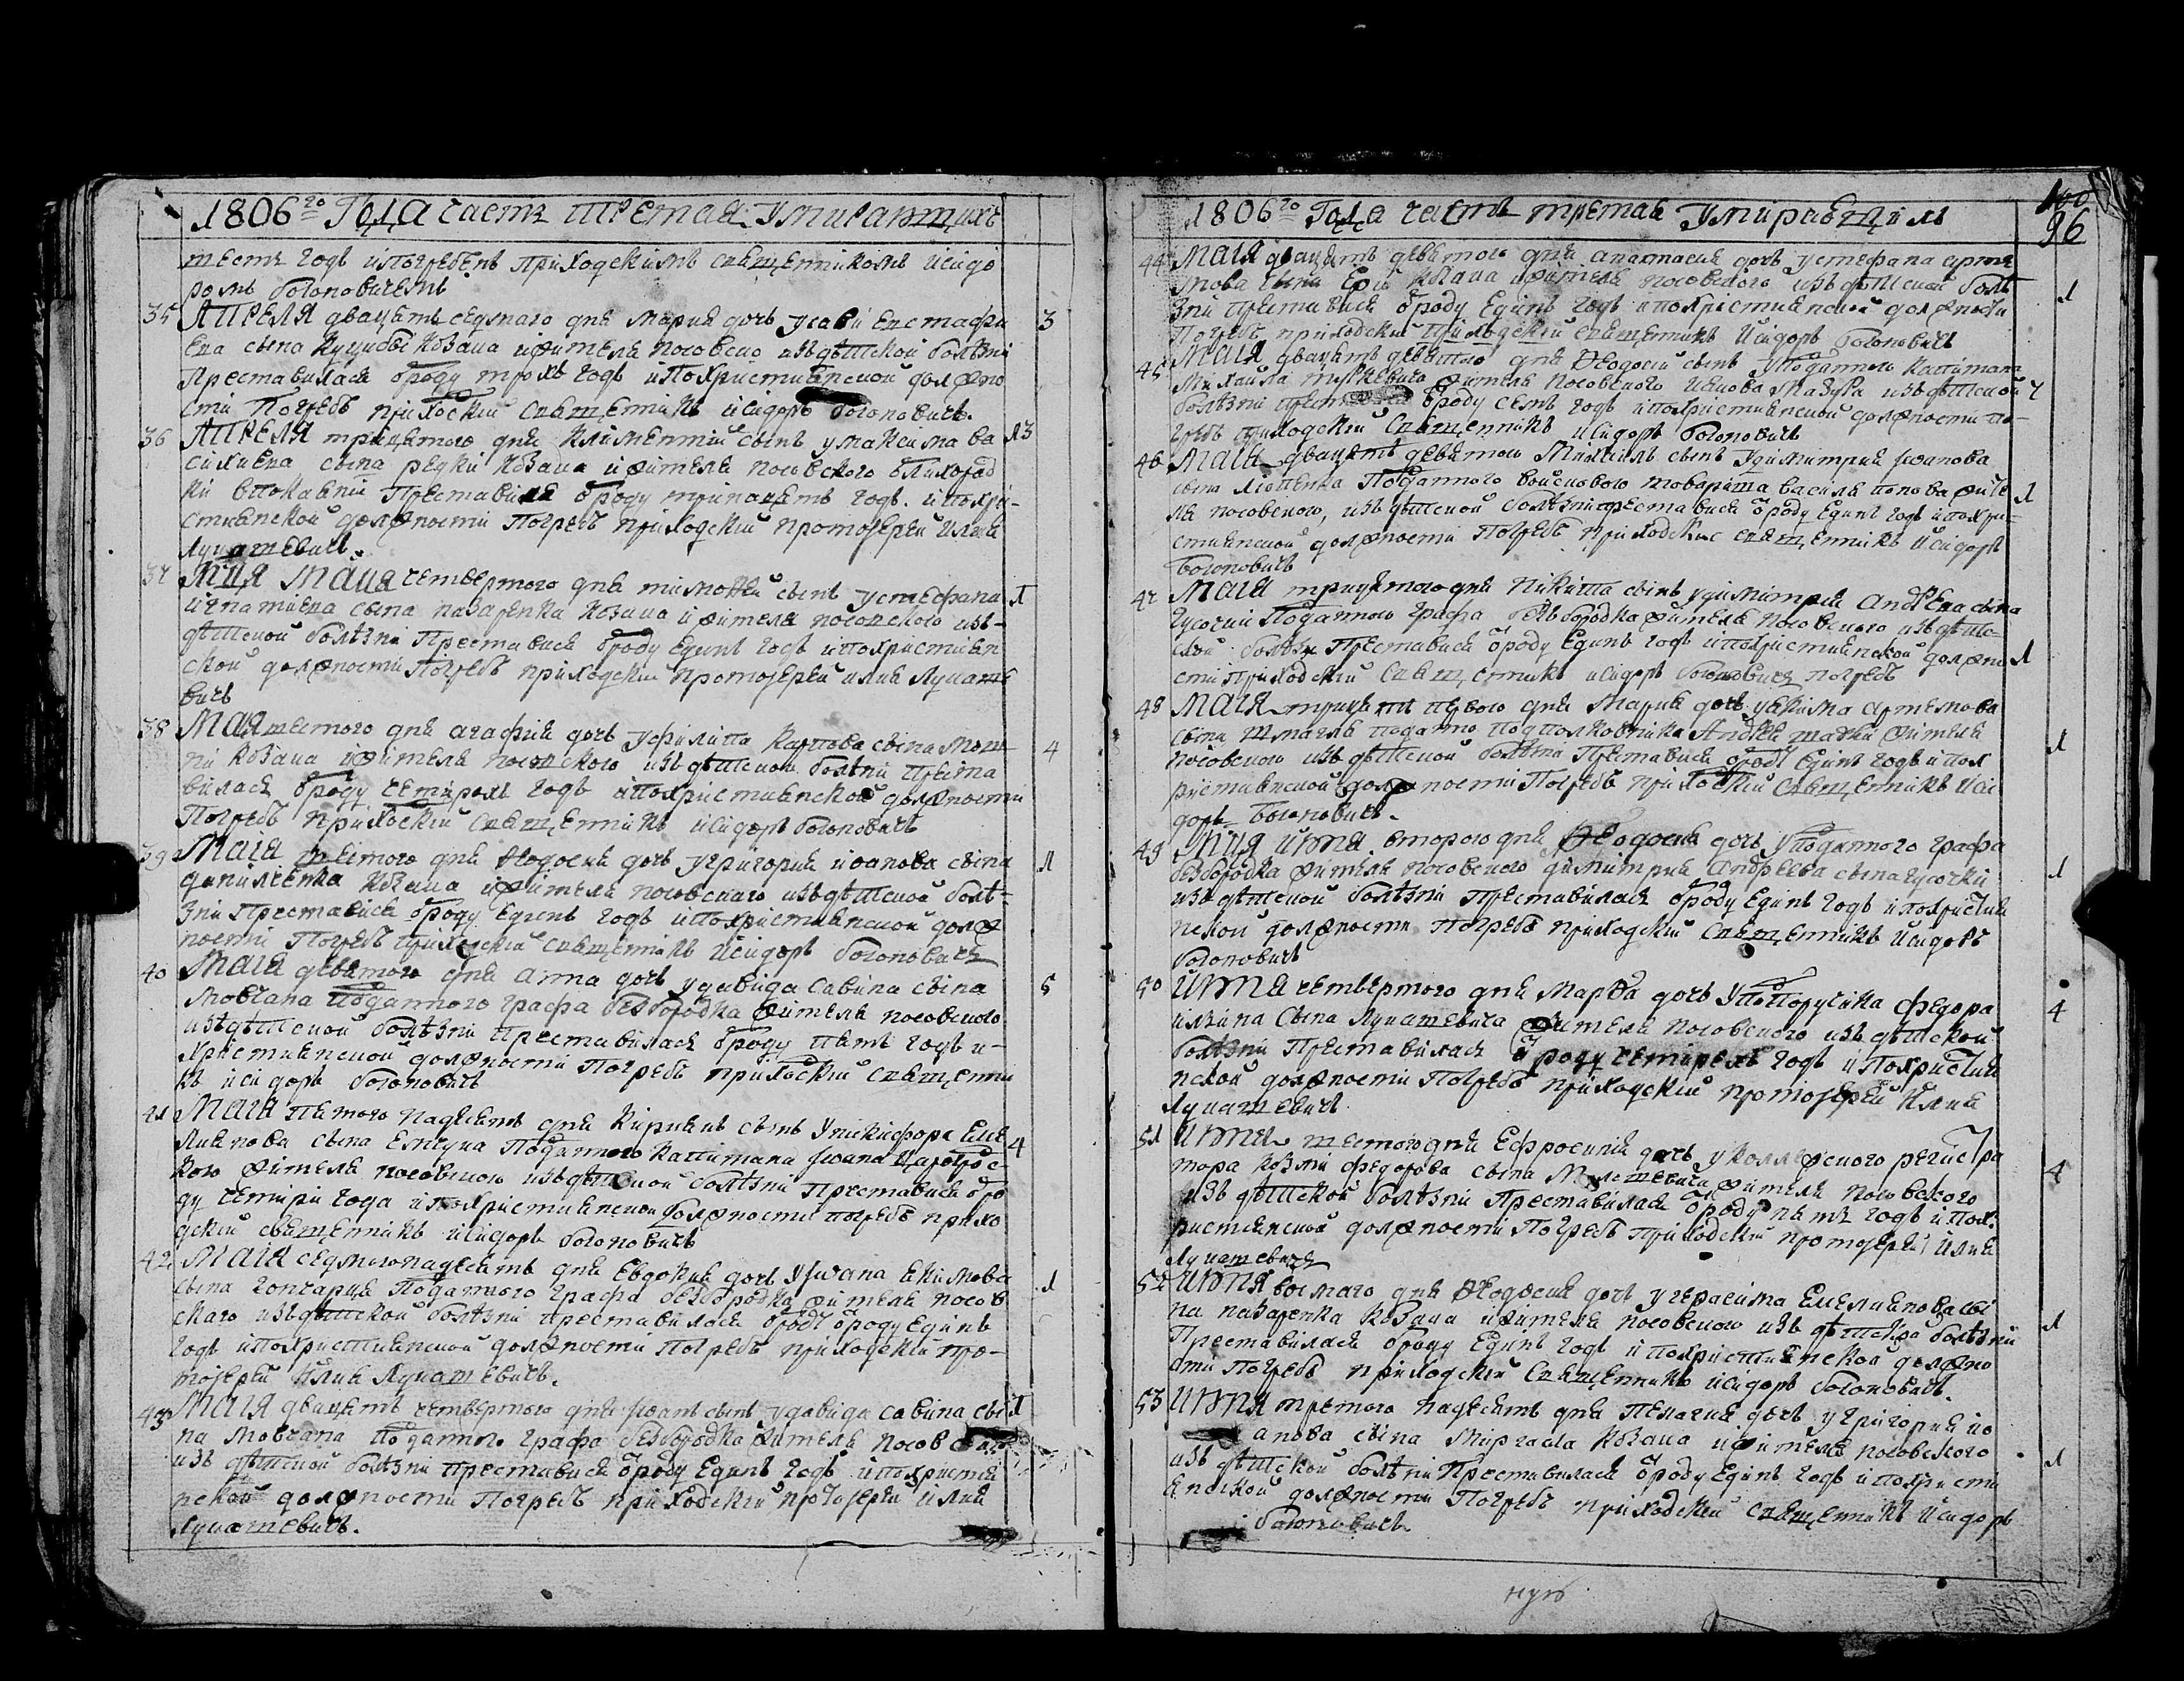 1806го Года часть третая умирающихъ
шесть годъ и погребенъ приходскимъ священникомъ Исидо
ромъ Богоновичемъ
35 Апреля двацать седмаго дня Мария дочь у Савы Евстафи 3
ева сына Куцубы козака и жителя носовско изъ детской болѣзни
Преставилася ѿроду трохъ годъ и по християнской должно
сти Погребъ прихоский священникъ Исидоръ Богоновичъ.
36 Апреля трицатого дня Климентий сынъ у Максима Ва 13
силиева сына Редки козака и жителя носовского ѿ лихорад
ки в покаянии Преставися ѿроду тринацать годъ. и по хри-
стиянской должности Погребъ приходский протоиерей Илия
Лукашевичъ.
37 Мця Мая четвертого дня Тимофей сынъ у Стефана 1
Игнатиева сына Назаренка козака и жителя носовского изъ
детской болѣзни Преставися ѿроду Единъ годъ и по християн
ской должности Погребъ приходский протоиерей Илия Лукаше
вичъ
38 Мая шестого дня Агафия дочь у Филипа Карпова сына Мош 4
ни козака и жителя носовского изъ детской болѣзни Преста
вилася ѿроду четирохъ годъ и по християнской должности
Погребъ прихоский священникъ Исидоръ Богоновичъ
39 Мая шестого дня Феодосия дочь у Григория Иоанова сына 1
Даниленка козака и жителя носовского изъ детской болѣ-
зни Преставися ѿроду Единъ годъ и по християнской долж
ности Погребъ приходский священникъ Исидоръ Богоновичъ
40 Мая девятого дня Анна дочь у Давида Савина сына 5
Мовчана Поданного графа Безбородка жителя носовского
изъ детской болѣзни Преставилася ѿроду пять годъ и
християнской должности Погребъ прихоский священни
къ Исидоръ Богоновичъ
41 Мая пятого надесять дня Кирикъ сынъ у Никифора Еме
лиянова сына Поданного Капитана Иоана 4
кого жителя носовского изъ детской болѣзни Преставися ѿро
ду четири года и по християнской должности погребъ прихо
дский священникъ Исидоръ Богоновичъ
42 Мая седмогонадесять дня Евдокия дочь у Иоана Якимова 1
сына Гончарця Поданного графа Безбородка жителя носов
ского изъ детской болѣзни преставилася ѿроду Единъ
годъ и по християнской должности Погребъ приходский про-
тоиерей Илия Лукашевичъ.
43 Мая двацать четвертого дня Иоанъ сынъ у Давида Савина сы 1
на Мовчана поданного графа Безбородка жителя носовского
изъ детской болѣзни преставися ѿроду Единъ годъ и по християн
ской должности Погребъ приходский протоиерей Илия
Лукашевичъ.
1806го Года часть третая умирающихъ
96
44 Мая двацать девятого дня Анастасия дочь у Стефана Артем
това сына козака и жителя носовского изъ детской болѣ 1
зни преставися ѿроду Единъ годъ и по християнской должности
Погребъ приходский приходский священникъ Исидоръ Богоновичъ
45 Мая двацать девятого дня Феодосий сынъ у поданного Капитана
Михайла жителя носовского Мазура изъ детской 7
болѣзни ѿроду семъ годъ и по християнской должности по-
гребъ приходский священникъ Исидоръ Богоновичъ
46 Мая двацать девятого Михаилъ сынъ у Димитрия Иоанова
сына Поданного войскового товариша Василя Попова жите 1
ля носовского, изъ детской болѣзни преставися ѿроду Единъ годъ и по хри-
стиянской должности Погребъ приходский священникъ Исидоръ
Богоновичъ
47 Мая трицятого дня Никита сынъ у Димитрия Андреева сына
Поданного графа Безбородка жителя носовского изъ детс-
кой болѣзни Преставися ѿроду Единъ годъ и по християнской должно 1
сти приходский священникъ Исидоръ Богоновичъ погребъ
48 Мая трицять первого дня Мария дочь у Якима Артемова
сына поданно подполковника Андрея жителя
носовского изъ детской болѣзни Преставися ѿроду Единъ годъ и по х 1
ристиянской должности Погребъ прихоский священникъ Иси
доръ Богоновичъ.
49 Мця Июня второго дня Феодосия дочь у поданного графа
Безбородка жителя носовского Димитрия Андреева сына 1
изъ детской болѣзни Преставилася ѿроду Единъ годъ и по християн
ской должности погребъ приходский священникъ Исидоръ
Богоновичъ
50 Июня четвертого дня Марфа дочь у Порутчика Федора 4
Илиина сына Лукашевича жителя носовского изъ детской
болѣзни Преставилася ѿроду четирехъ годъ и по християн
ской должности Погребъ приходский протоиерей Илия
Лукашевичъ
51 Июня шестого дня Ефросиния дочь у коллежского регистра
тора Козми Федорова сына жителя носовского 4
изъ детской болѣзни Преставилася ѿроду пять годъ и по х
ристиянской должности Погребъ приходский протоиерей Илия
Лукашевичъ
52 Июня восмаго дня Феодосия дочь у Герасима Емелиянова сы
на Назаренка козака и жителя носовского изъ детской болѣзни 1
Преставилася ѿроду Единъ годъ и по християнской должно
сти Погребъ приходский священникъ Исидоръ Богоновичъ.
53 Июня третого надесять дня Пелагия дочь у Григория Ио
анова сына козака и жителя носовского
изъ детской болѣзни Преставилася ѿроду Единъ годъ и по христи 1
янской должности Погребъ приходский священникъ Исидоръ
Богоновичъ.